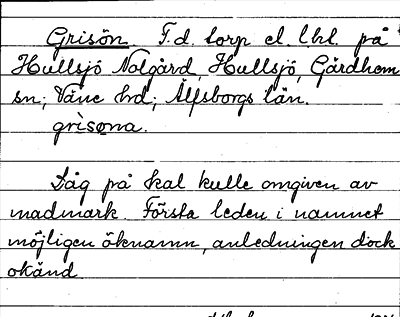 Grisön. F.d. torp el. lht. på
Hullsjö Nolgård, Hullsjö, Gärdhem
sn; Väne hd; Älfsborgs län.
grìsøna.
Låg på kal kulle omgiven av
madmark. Första leden i namnet
möjligen öknamn, anledningen dock
okänd.